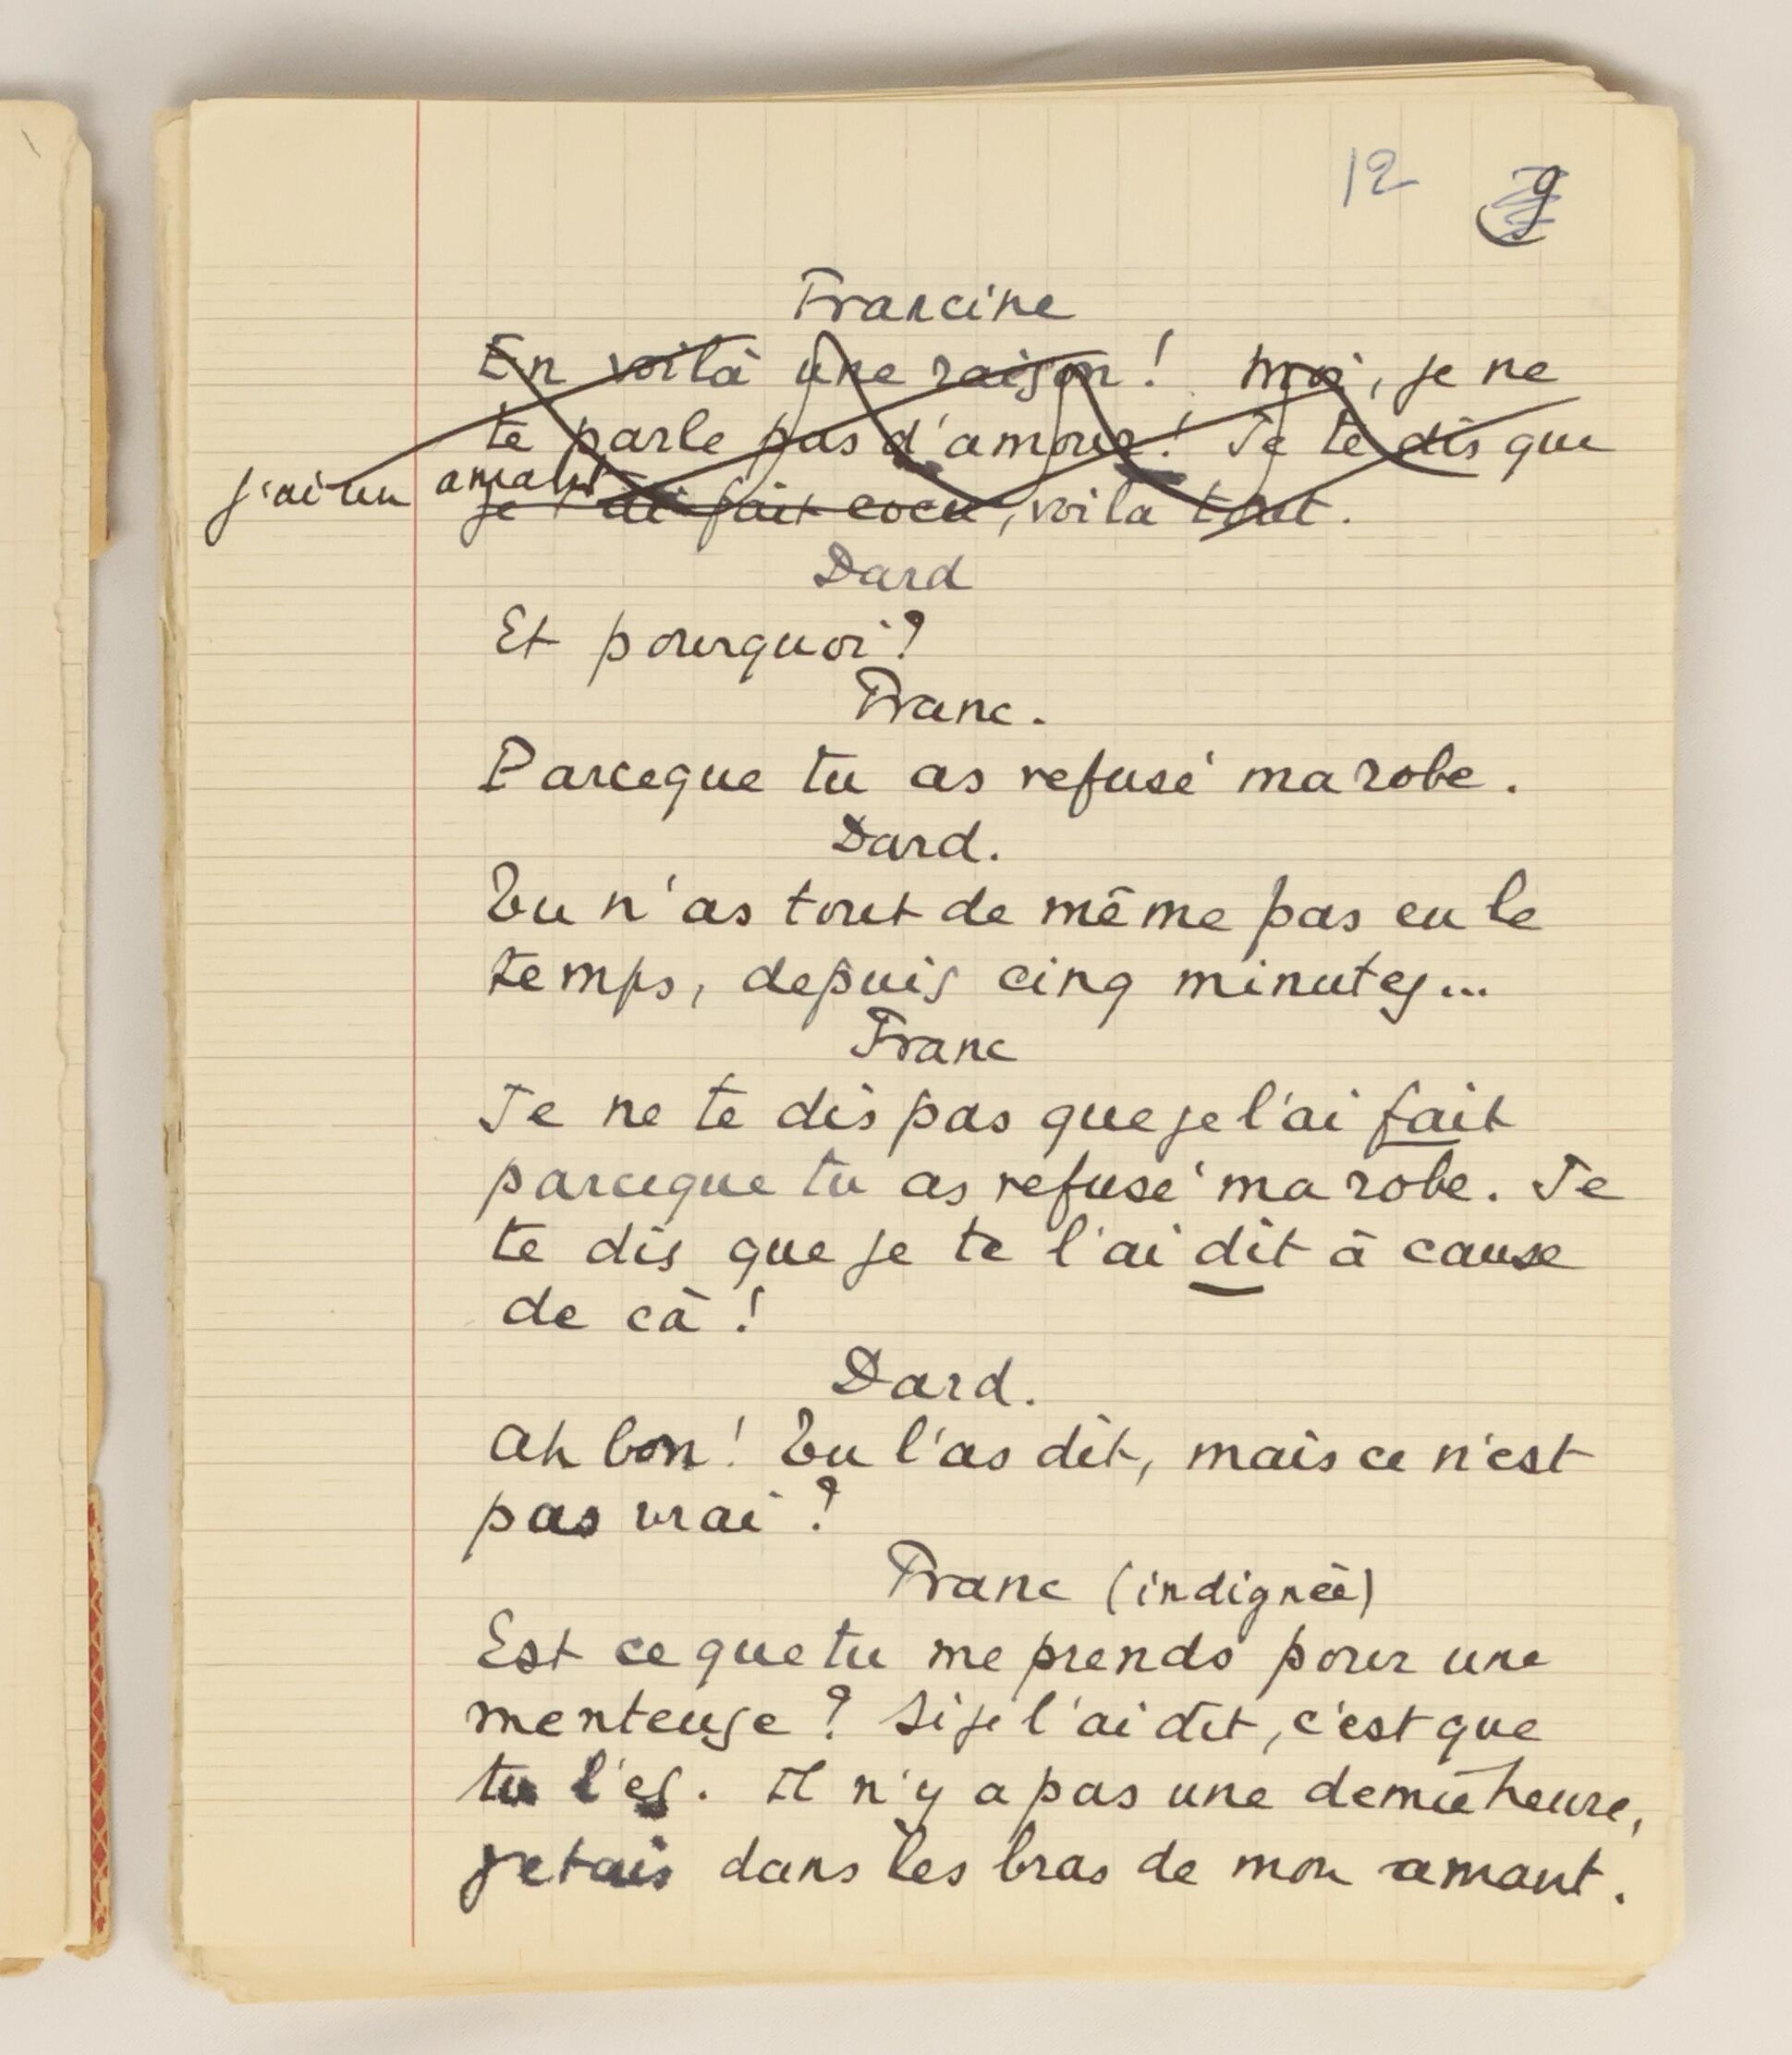 12 9
Francine
En voilà une raison ! Moi, je ne
te parle pas d'amour ! Je te dis que
j'ai un amant
je t'ai fait cocu, voilà tout.
Dard
Et pourquoi ?
Franc.
Parceque tu as refusé ma robe.
Dard.
Tu n'as tout de même pas eu le
temps, depuis cinq minutes...
Franc
Je ne te dis pas que je l'ai fait
parceque tu as refusé ma robe. Je
te dis que je te l'ai dit à cause
de cà !
Dard.
Ah bon ! Tu l'as dit, mais ce n'est
pas vrai ?
Franc (indignée)
Est ce que tu me prends pour une
menteuse ? Si je l'ai dit, c'est que
tu l'es. Il n'y a pas une demie heure,
j'etais dans les bras de mon amant.